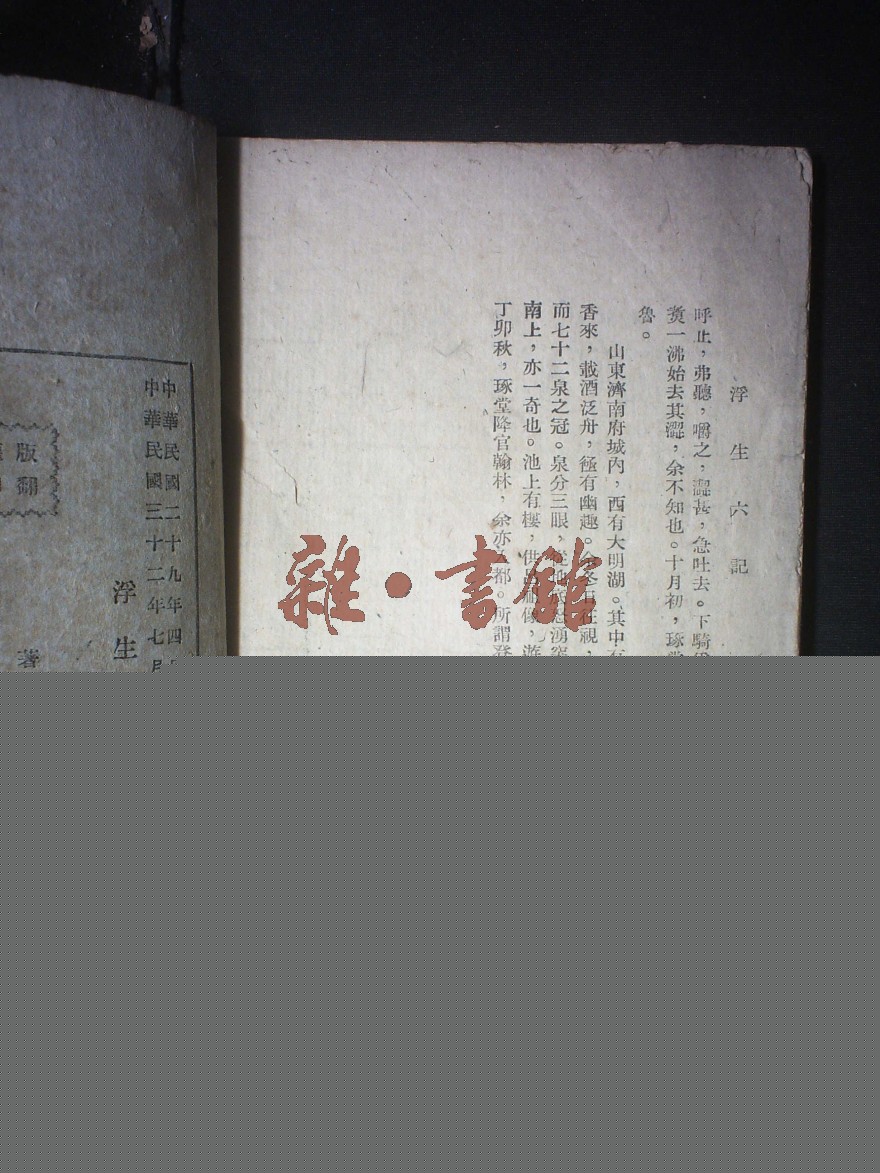 浮生六記
呼止,弗聽,嚼之,澀甚,急吐去。下騎
煑一沸始去其澀,余不知也。十月初,琢
魯。
山東濟南府城內,西有大明湖。其中
香來,載酒泛舟,極有幽趣。余冬日往視,
而七十二泉之冠。泉分三眼,從地底怒湧突
南上,亦一奇也。池上有樓,供呂祖像,遊
丁卯秋,琢堂降官翰林,余亦入都。所謂登
雜·書館
中華民國二十九年四
中華民國三十二年七月
浮生
版翻
著